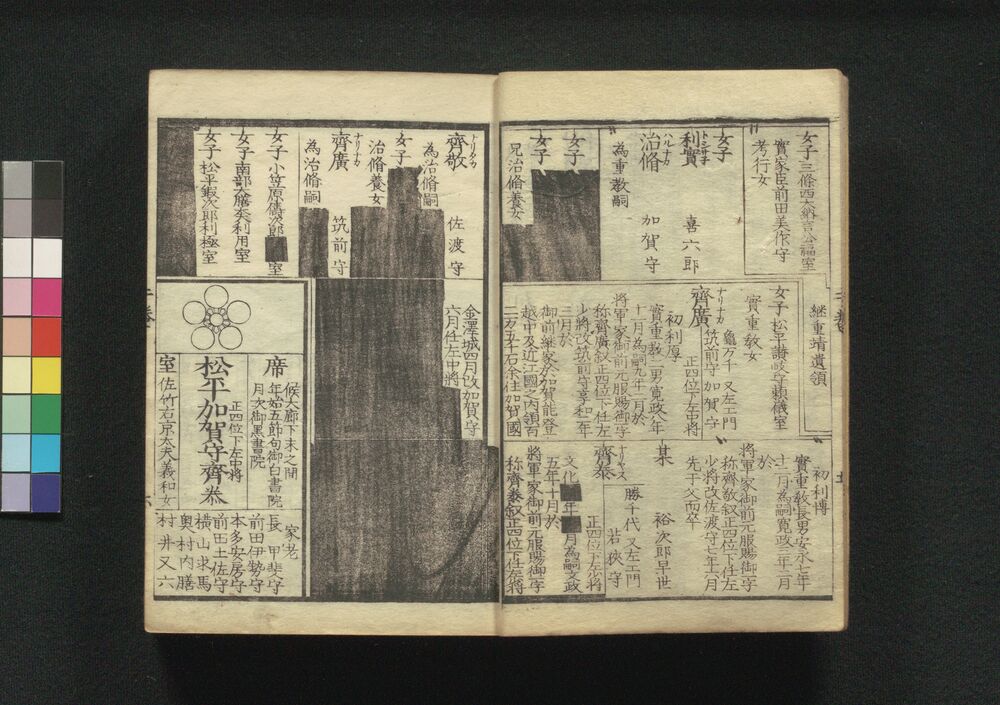 女子 三條西大納言公福室
實家臣前田美作守
孝行女
女子
利實 喜六郎
トシザネ
治脩 加賀守
ハルナガ
為重教嗣
女子
女子
兄治脩養女
継重靖遺領
女子 松平讃岐守頼儀室
實重教女
齊廣
ナリナガ
龜万千 又左エ門
筑前守 加賀守
正四位下左中将
初利厚
實重教二男寛政八年
十二月為嗣九年二月於
将軍家御前元服賜御字
称齊廣叙正四位下任左
少将改筑前守享和二年
三月於
御前継家於加賀能登
越中及近江國之内領百
二万五千石余住加賀國
初利博
實重教長男安永七年
十二月為嗣寛政三年二月
於
将軍家御前元服賜御字
称齊敬叙正四位下任左
少将改佐渡守七年六月
先于父而卒
某 裕次郎早世
齊泰
ナリヤス
勝千代 又左エ門
若狭守
正四位下左少将
文化 年 月為嗣文政
五年十月於
将軍家御前元服賜御字
称齊泰叙正四位下任左少将
齊敬 佐渡守
ナリタカ
為治脩嗣
女子
治脩養女
齊廣 筑前守
ナリナカ
為治脩嗣
女子 小笠原 次郎 室
女子 南部大膳大夫利用室
女子 松平鍜次郎利極室
金澤城四月改加賀守
六月任左中将
席
候大廊下末之間
年始五節句御白書院
月次御黒書院
正四位下左中将
松平加賀守齊泰
室 佐竹右京大夫義和女
家老
長甲斐守
前田伊勢守
本多安房守
前田土佐守
横山求馬
奥村内膳
村井又六